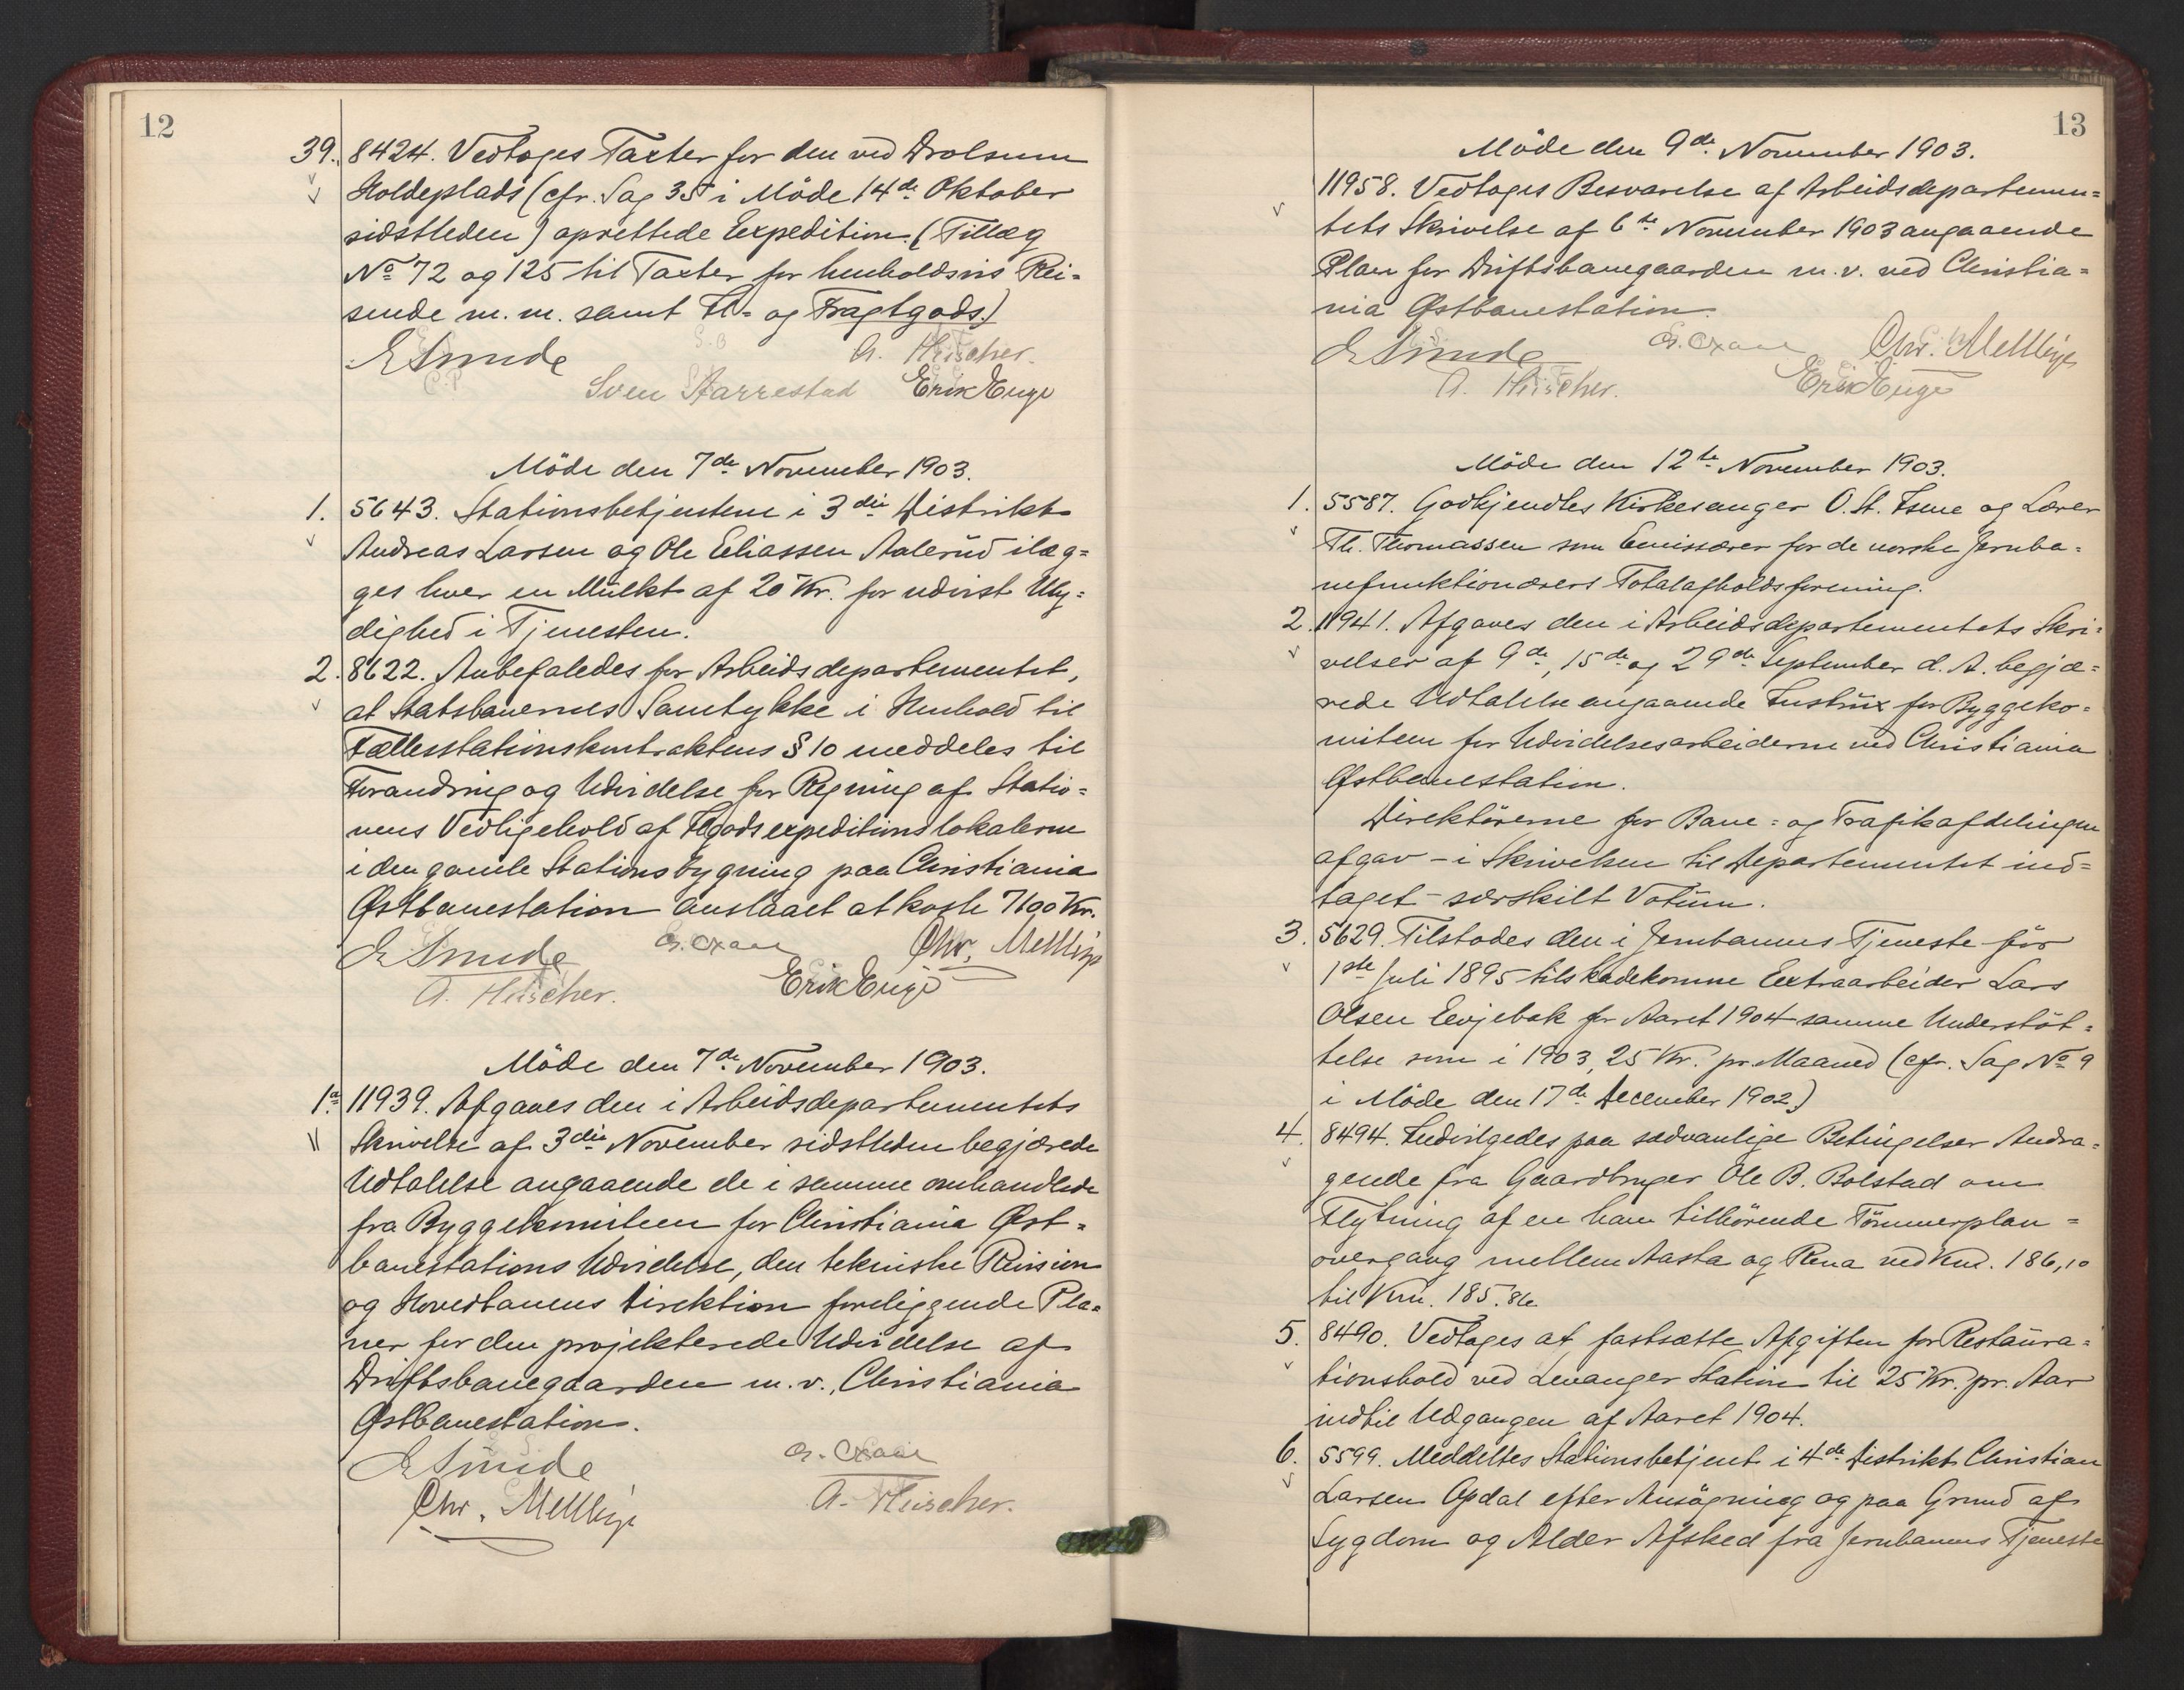 12
39. 8424. Vedtoges Taxter for den ved Drolsum
Holdeplads (cfr. Sag 35 i Möde 14de Oktober
sidstleden) oprettede Expedition. (Tillæg
No 72 og 125 til Taxter for henholdsvis Rei=
sende m. m. samt Il- og Fragtgods.)
E Sunde A. Fleischer.
Sven Aarrestad Erik Enge
Möde den 7de November 1903.
1. 5643. Stationsbetjentene i 3die Distrikt
Andreas Larsen og Ole Eliassen Aalerud ilæg=
ges hver en Mulkt af 20 Kr. for udvist Uly=
dighed i Tjenesten.
2. 8622. Anbefaledes for Arbeidsdepartementet,
at Statsbanernes Samtykke i Henhold til
Fællesstationskontraktens § 10 meddeles til
Forandring og Udvidelse for Regning af Statio=
nens Vedligehold af Ilgodsexpeditionslokalerne
i den gamle Stationsbygning paa Christiania
Østbanestation anslaaet at koste 7190 Kr.
E Sunde Chr. Mellbye
A. Fleischer. Erik Enge
Möde den 7de November 1903.
1a 11939. Afgaves den i Arbeidsdepartementets
Skrivelse af 3die November sidstleden begjærede
Udtalelse angaaende de i samme omhandlede
fra Byggekomiteen for Christiania Øst=
banestations Udvidelse, den tekniske Revision
og Hovedbanens Direktion foreliggende Pla=
ner for den projekterede Udvidelse af
Driftsbanegaarden m. v., Christiania
Østbanestation.
E Sunde
Chr. Mellbye A. Fleischer.
13
Möde den 9de November 1903.
11958. Vedtoges Besvarelse af Arbeidsdepartemen=
tets Skrivelse af 6te November 1903 angaaende
Plan for Driftsbanegaarden m. v. ved Christia=
nia Østbanestation.
E Sunde Chr. Mellbye
A. Fleischer. Erik Enge
Möde den 12te November 1903.
1. 5587. Godkjendtes Kirkesanger O. St. og Lærer
Th. Thomassen som Emissærer for de norske Jernba=
nefunktionærers Totalafholdsforening.
2. 11941. Afgaves den i Arbeidsdepartementets Skri=
velser af 9de, 15de og 29de September d. A. begjæ=
rede Udtalelse angaaende Instrux for Byggeko=
miteen for Udvidelsesarbeiderne ved Christiania
Østbanestation.
Direktörerne for Bane= og Trafikafdelingen
afgav - i Skrivelsen til Departementet ind=
taget - særskilt Votum.
3. 5629. Tilstodes den i Jernbanens Tjeneste för
1ste Juli 1895 tilskadekomne Extraarbeider Lars
Olsen Evjebak for Aaret 1904 samme Understöt=
telse som i 1903, 25 Kr. pr. Maaned (cfr. Sag No 9
i Möde den 17de December 1902.)
4. 8494. Indvilgedes paa sædvanlige Betingelser Andra=
gende fra Gaardbruger Ole B. Bolstad om
Flytning af en ham tilhörende Tömmerplan=
overgang mellem Aasta og Rena ved Km. 186,10
til Km. 185.86
5. 8490. Vedtoges at fastsætte Afgiften for Restaura=
tionshold ved Levanger Station til 25 Kr. pr. Aar
indtil Udgangen af Aaret 1904.
6. 5599. Meddeltes Stationsbetjent i 4de Distrikt Christian
Larsen Opdal efter Ansögning og paa Grund af
Sygdom og Alder Afsked fra Jernbanens Tjeneste